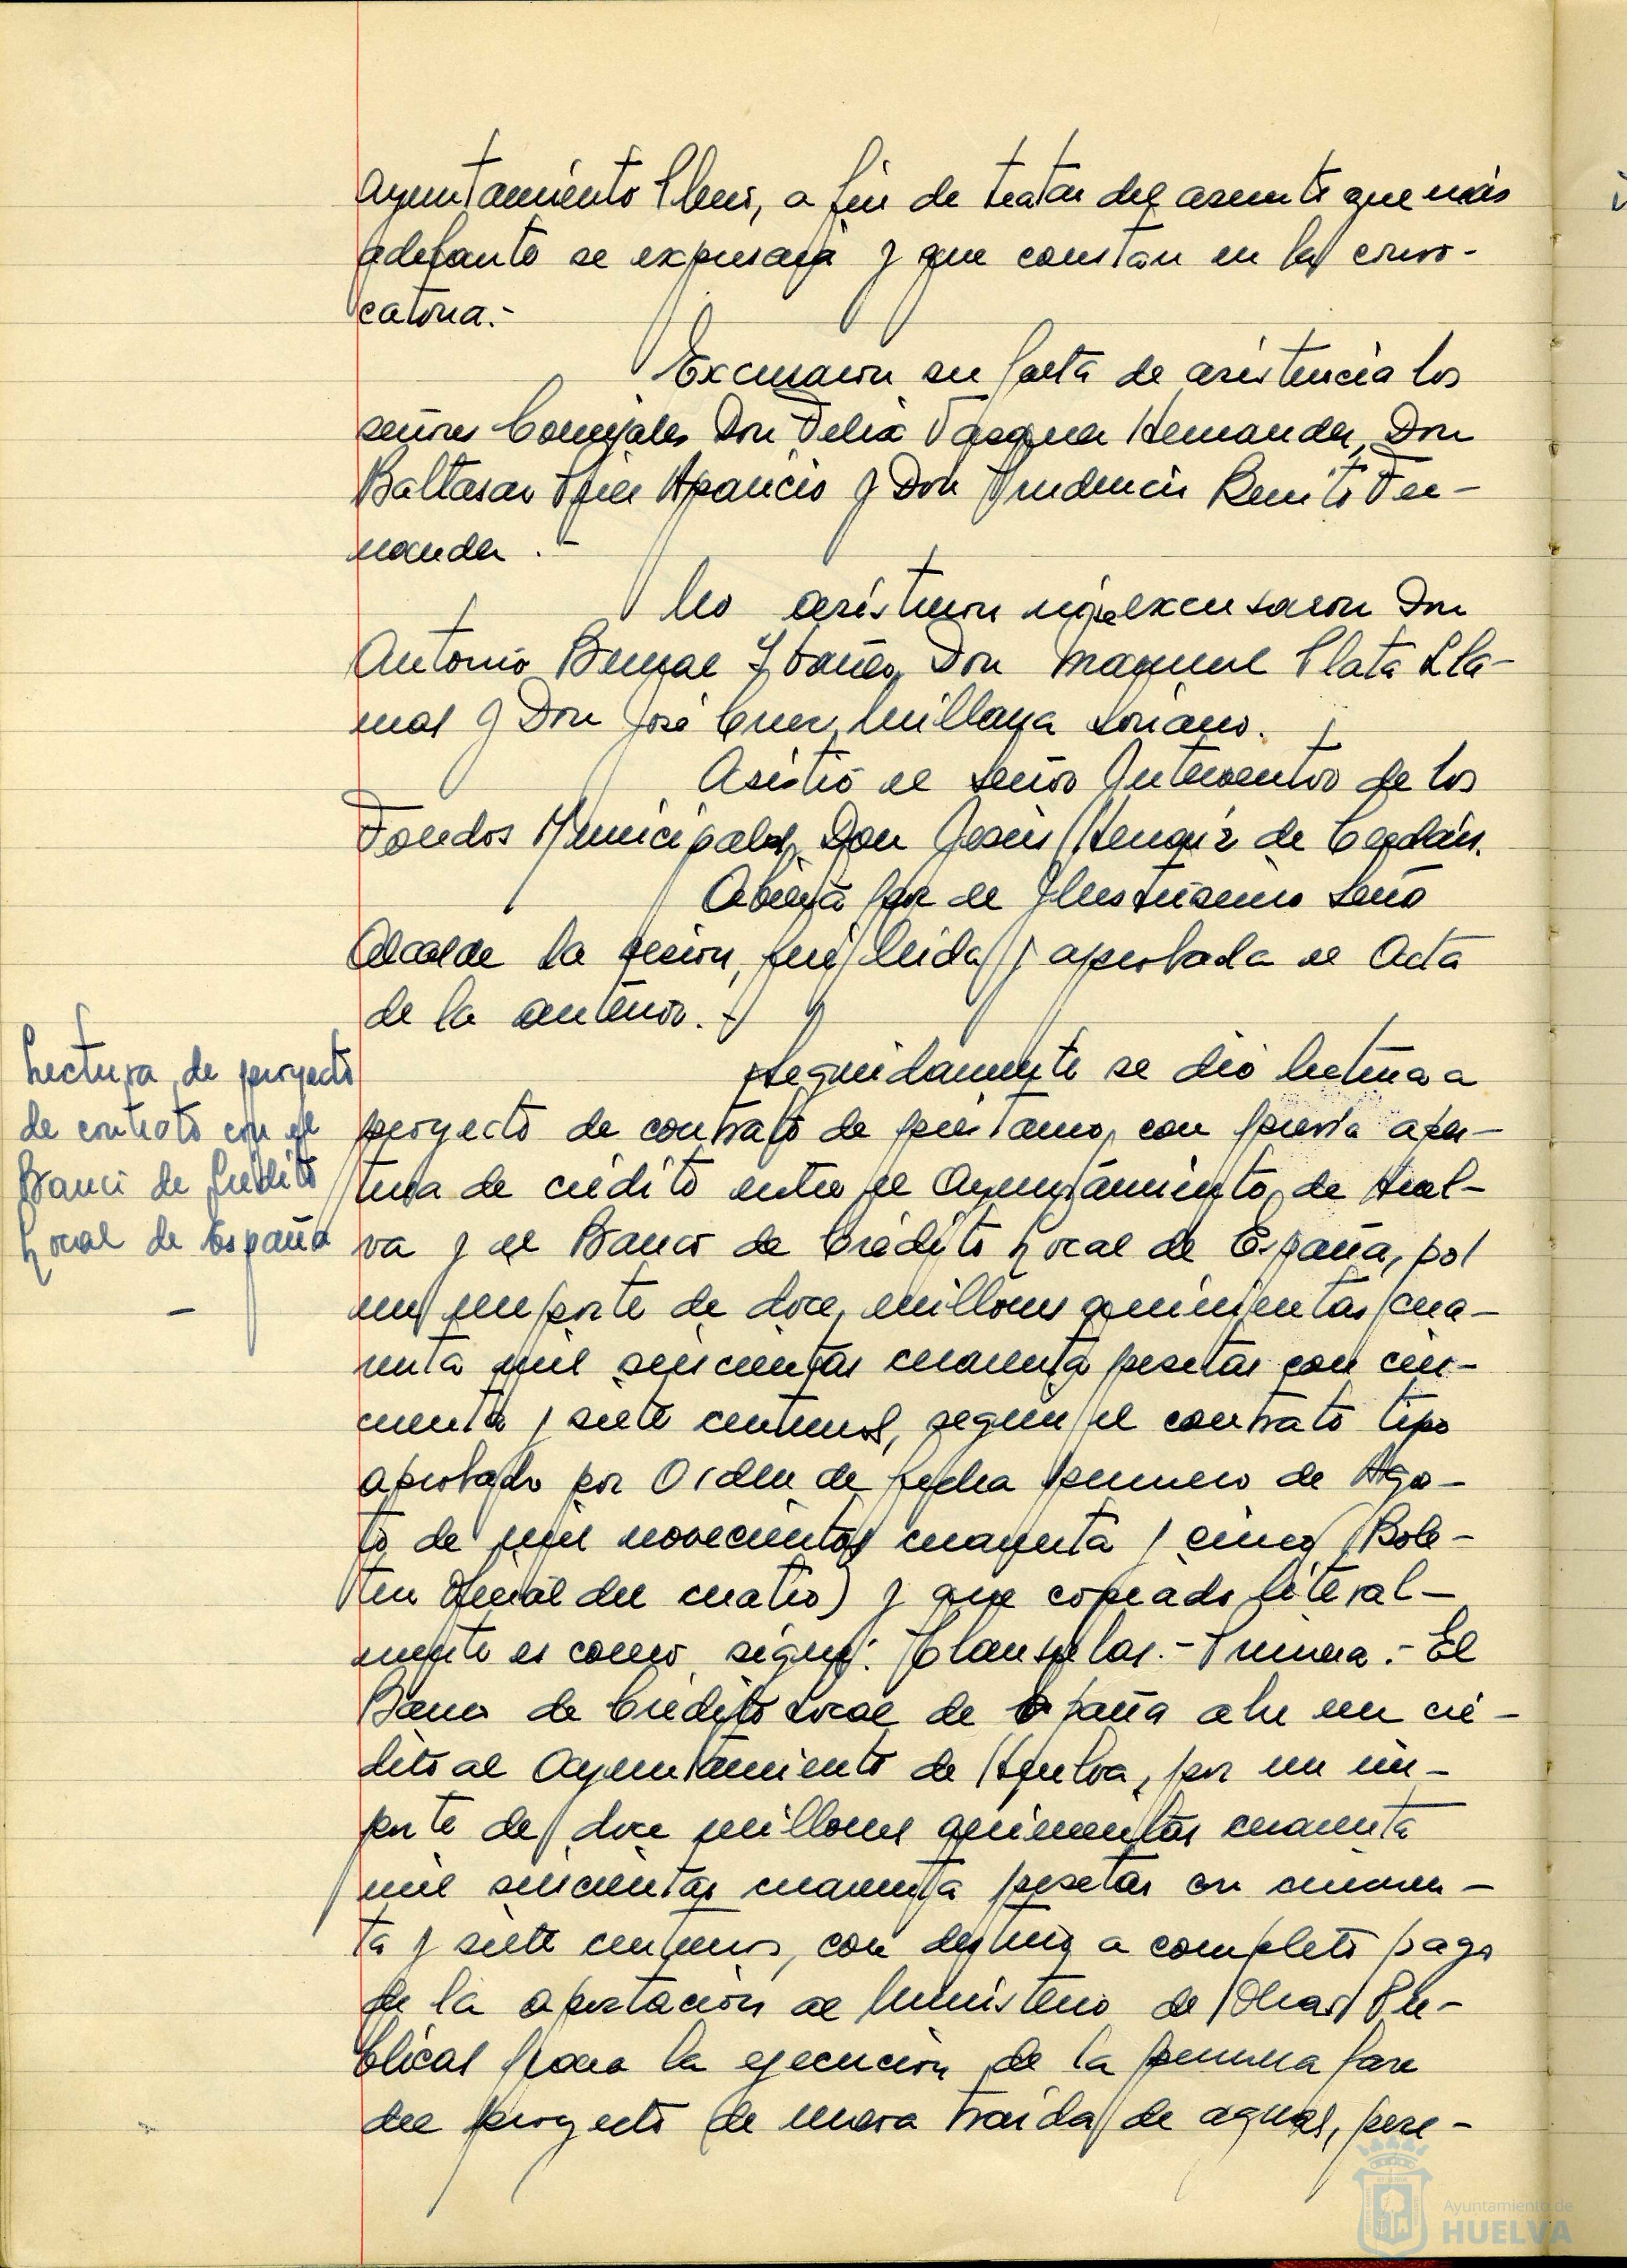 Ayuntamiento Pleno, a fin de tratar del asunto que más
adelante se expresará y que constan en la convo-
catoria.-
Excusaron su falta de asistencia los
señores Concejales Don Felix Vazquez Hernandez, Don
Baltasar Aparicio y Don Prudencio Benito Fer-
nandez.-
No asistieron ni se excusaron Don
Antonio Bernal Ybañez, Don Manuel Plata Lla-
mas y Don José Cruz Millana Soriano.
Asistió el señor Interventor de los
Fondos Municipales, Don Jesús Henriz de Cegdán.
Abierta por el Ilustrisimo Señor
Alcalde la sesion, fué leida y aprobada el Acta
de la anterior.-
Lectura de proyecto
de contrato con el
Banco de Crédito
Local de España
—
Seguidamente se dió lectura a
proyecto de contrato de préstamo, con previa aper-
tura de crédito entre el Ayuntamiento de Huel-
va y el Banco de Crédito Local de España, por
un importe de doce millones quinientas cua-
renta mil seiscientas cuarenta pesetas con cin-
cuenta y siete centimos, segun el contrato tipo
aprobado por Orden de fecha primero de Agos-
to de mil novecientos cuarenta y cinco (Bole-
tin Oficial del cuatro) y que copiado literal-
mente es como sigue: Clausulas.- Primera.- El
Banco de Crédito Local de España abre un cré-
dito al Ayuntamiento de Huelva, por un im-
porte de doce millones quinientas cuarenta
mil seiscientas cuarenta pesetas con cincuen-
ta y siete centimos, con destino a completo pago
de la aportacion al Ministerio de Obras Pú-
blicas para la ejecucion de la primera fase
del proyecto de nueva traida de aguas, pese-
Ayuntamiento de
HUELVA